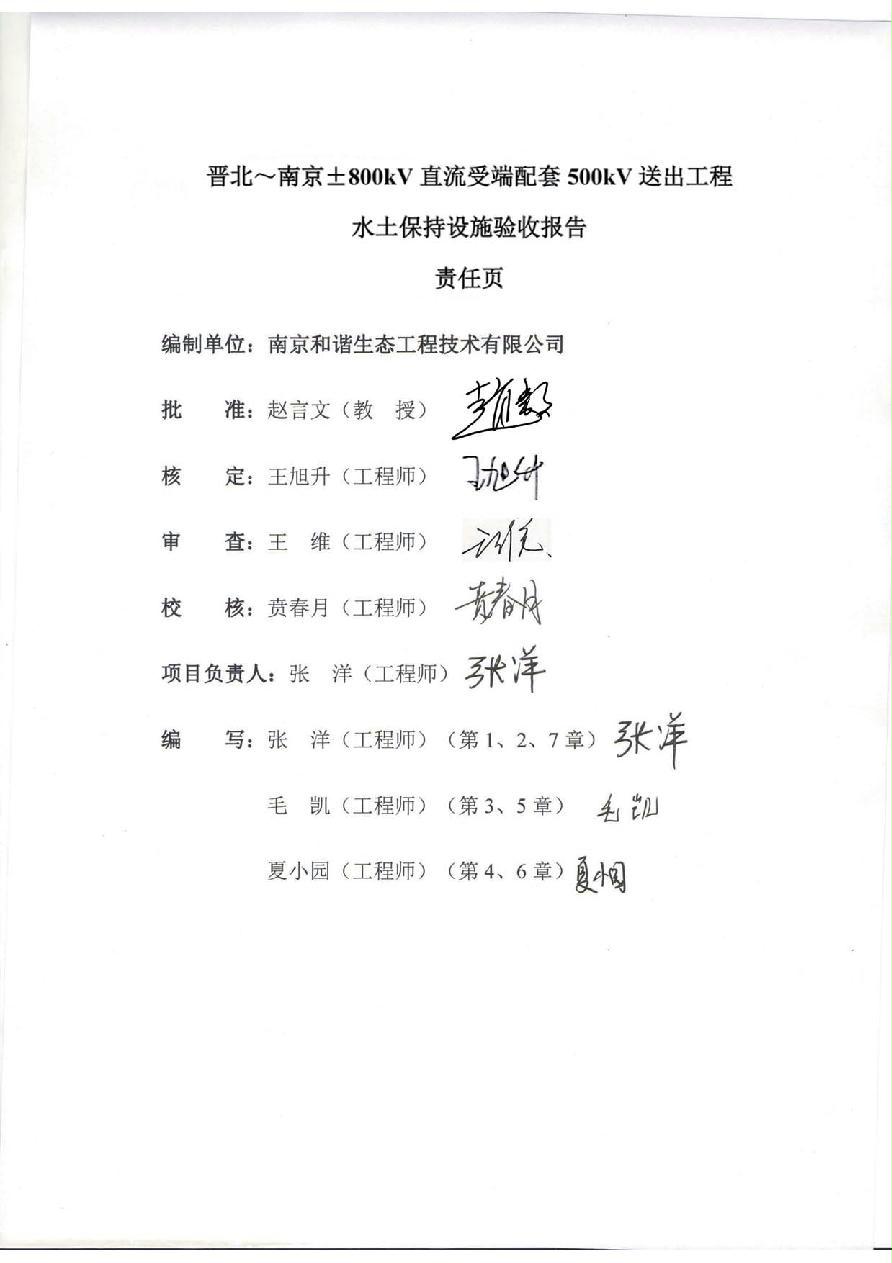 晋北～南京±800kV 直流受端配套 500kV 送出工程
水土保持设施验收报告
责任页
编制单位：南京和谐生态工程技术有限公司
批　　准：赵言文（教　授）
核　　定：王旭升（工程师） 王旭升
审　　查：王　维（工程师）
校　　核：贲春月（工程师） 贲春月
项目负责人：张　洋（工程师） 张洋
编　　写：张　洋（工程师）（第 1、2、7 章） 张洋
毛　凯（工程师）（第 3、5 章） 毛凯
夏小园（工程师）（第 4、6 章） 夏小园